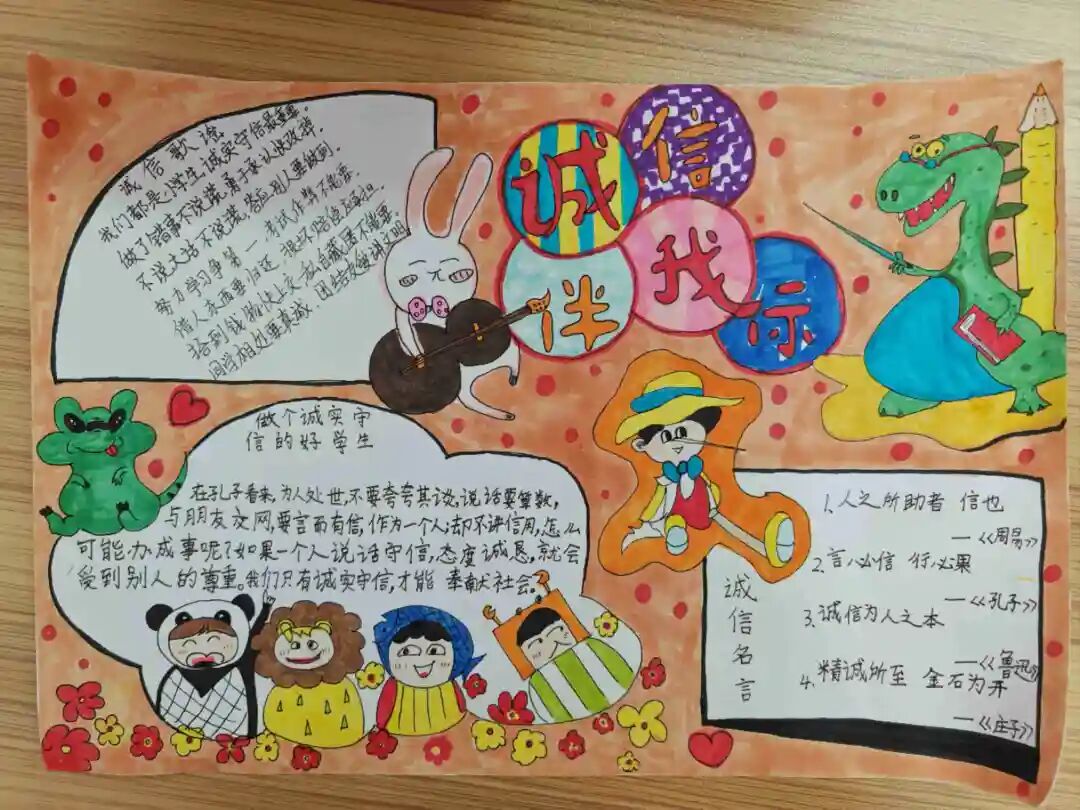 诚信伴我行
诚信歌谣
我们都是小学生,诚实守信最重要。
做了错事不说谎,勇于承认快改掉。
不说大话不说谎,答应别人要做到。
努力学习争第一,考试作弊不能要。
借人东西要归还,损坏赔偿应该
拾到钱物快上交,放自己藏匿不能要。
同学相处要真诚,团结友爱讲文明。
做个诚实守
信的好学生
在孔子看来,为人处世,不要夸夸其谈,说话要算数,
与朋友交网,要言而有信,作为一个人,却不讲信用,怎么
可能办成事呢?如果一个人说话守信,态度诚恳,就会
受到别人的尊重。我们只有诚实守信,才能 奉献社会。
诚信名言
1.人之所助者 信也
—《周易》
2.言必信 行必果
—《孔子》
3.诚信为人之本
—《鲁迅》
4.精诚所至 金石为开
—《庄子》